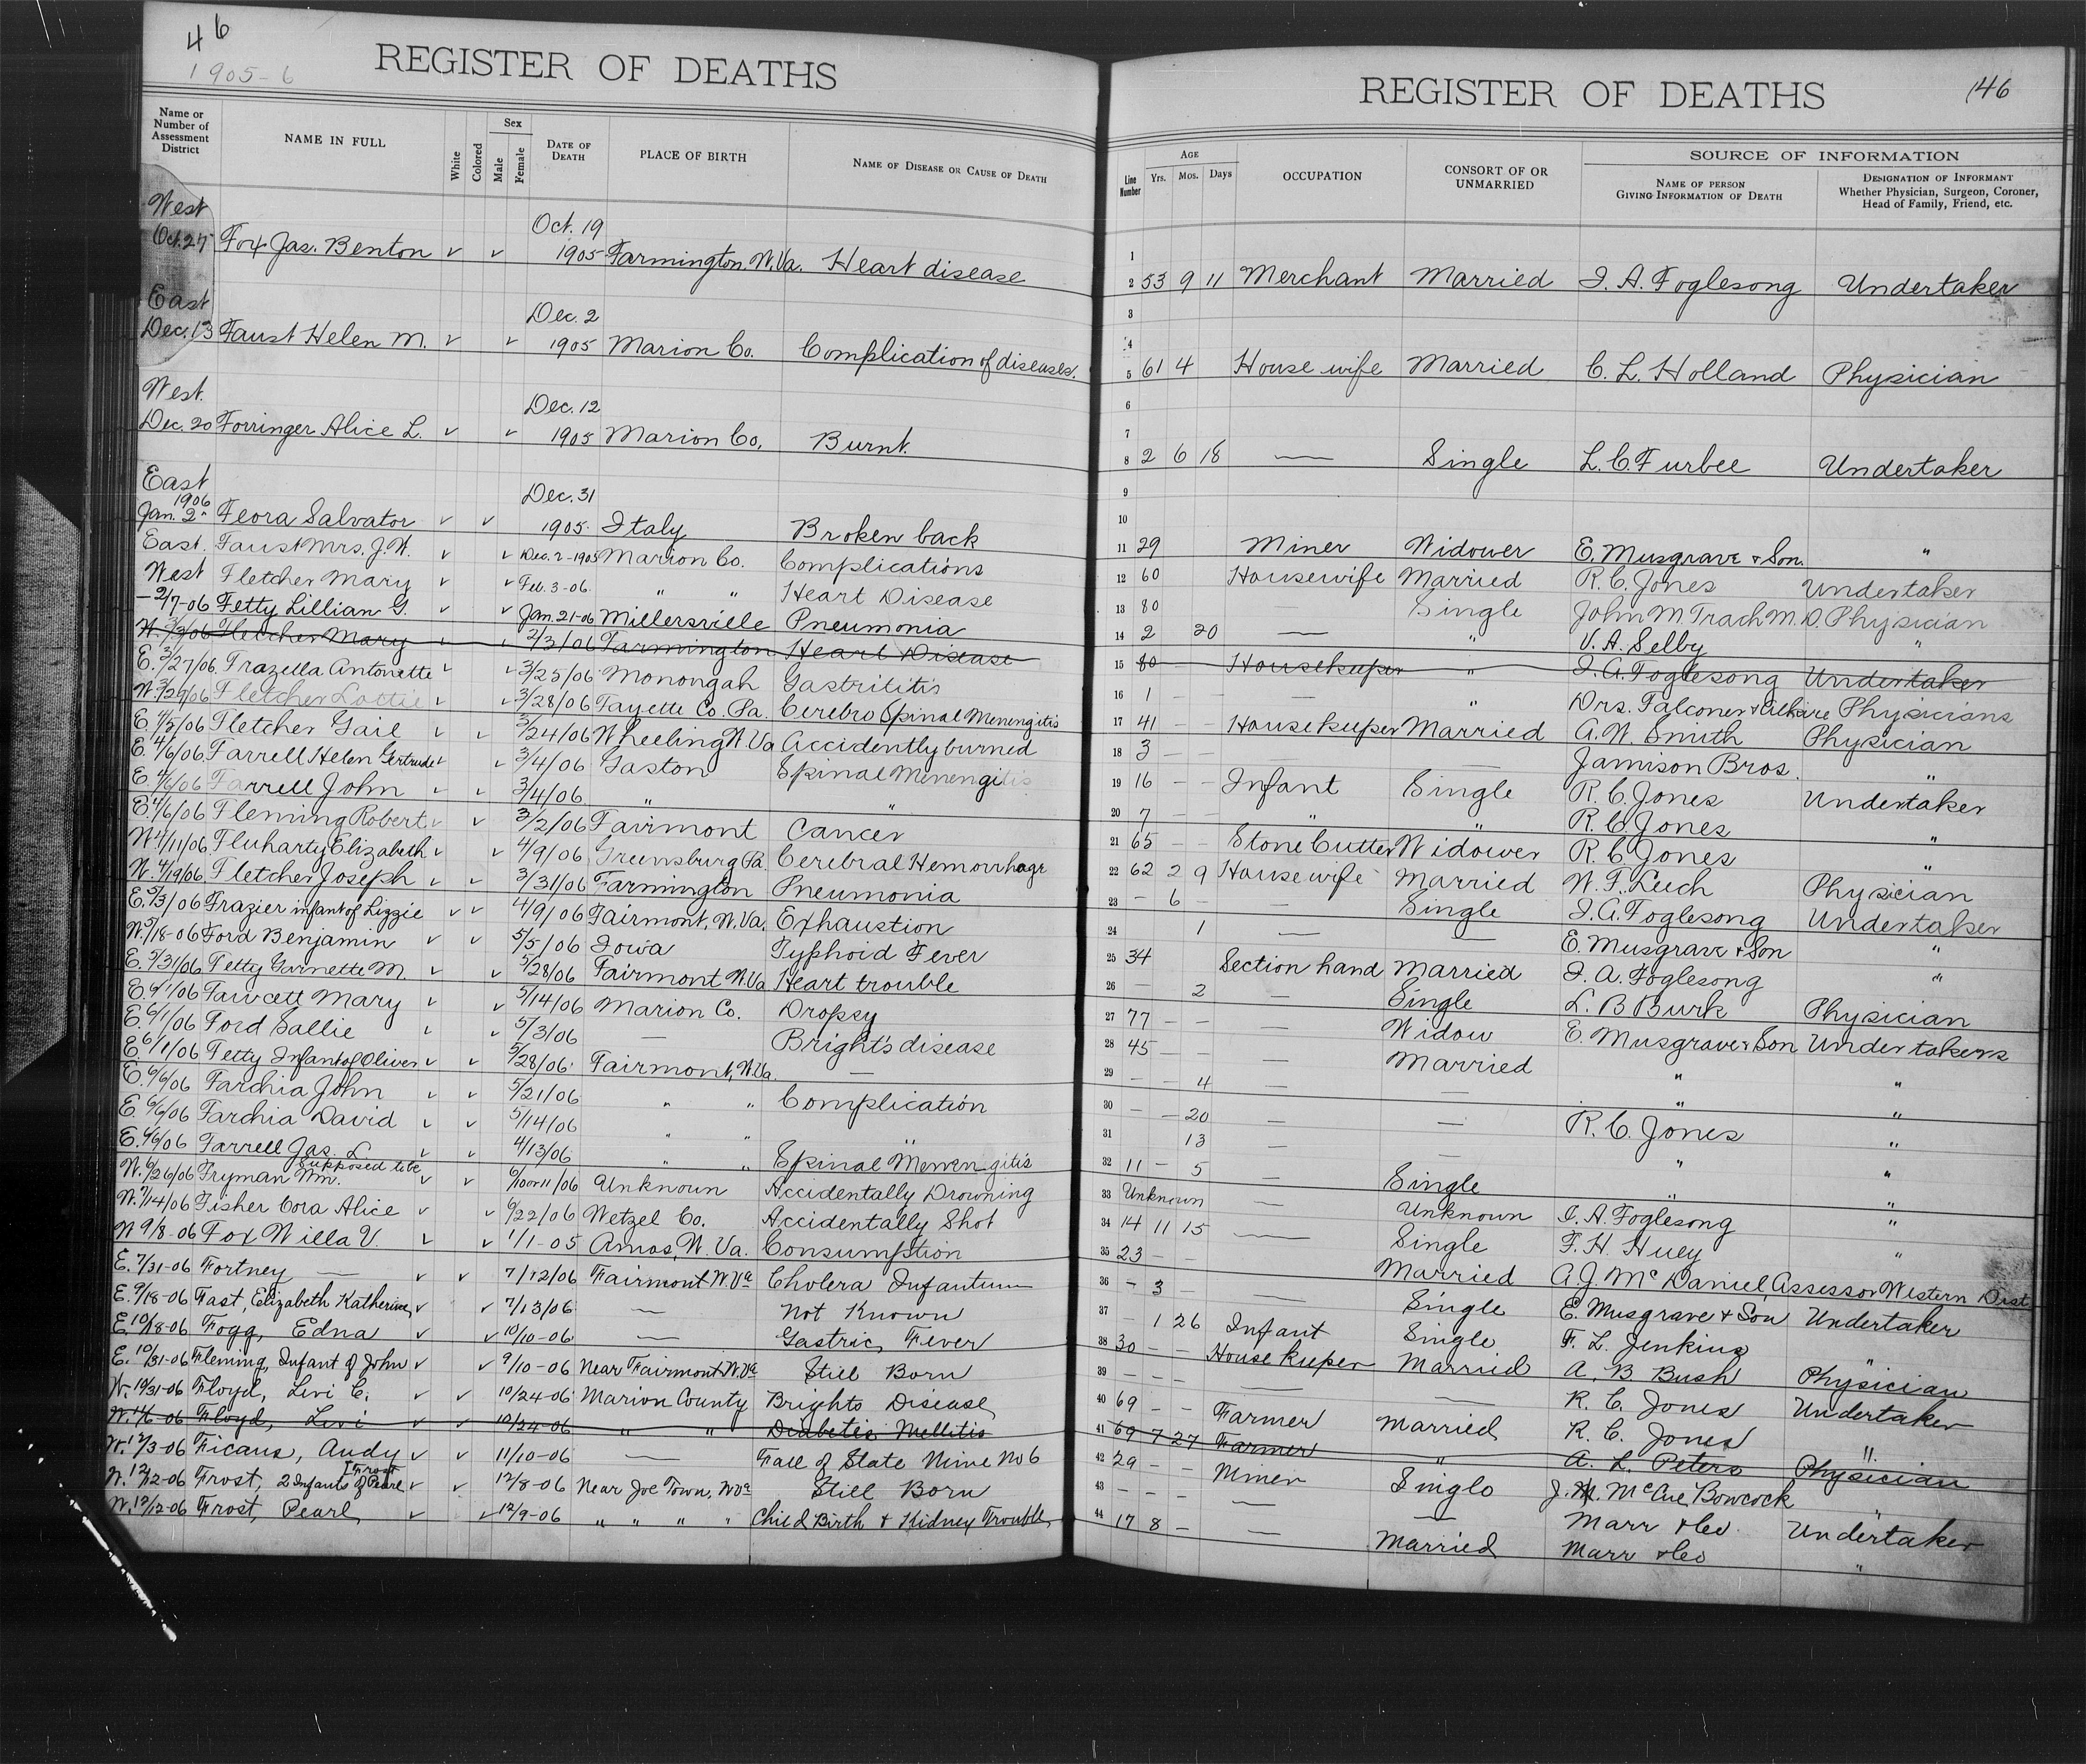 46
1905-6
REGISTER OF DEATHS
Name or Number of Assessment District
NAME IN FULL
White
Colored
Sex
Male
Female
DATE OF DEATH
PLACE OF BIRTH
NAME OF DISEASE OR CAUSE OF DEATH
West Oct. 19
Oct. 27 Fox Jas. Benton ✓ ✓ 1905 Farmington, W. Va. Heart disease
East Dec. 2
Dec. 13 Faust Helen M. ✓ ✓ 1905 Marion Co. Complication of diseases.
West. Dec. 12
Dec. 20 Forringer Alice L. ✓ ✓ 1905 Marion Co. Burnt.
East 1906 Dec. 31
Jan. 2 Feora Salvator ✓ ✓ 1905 Italy Broken back
East. Faust Mrs. J. W. ✓ ✓ Dec. 2-1905 Marion Co. Complications
West Fletcher Mary ✓ ✓ Feb. 3-06 " " Heart Disease
-2/7-06 Fetty Lillian G. ✓ ✓ Jan. 21-06 Millersville Pneumonia
W. 3/3/06 Fletcher Mary ✓ ✓ 2/3/06 Farmington Heart Disease
E. 3/27/06 Frazella Antonette ✓ ✓ 3/25/06 Monongah Gastrititis
W. 3/29/06 Fletcher Lottie ✓ ✓ 3/28/06 Fayette Co. Pa. Cerebro Spinal Menengitis
E. 4/2/06 Fletcher Gail ✓ ✓ 3/24/06 Wheeling W. Va Accidently burned
E. 4/6/06 Farrell Helen Gertrude ✓ ✓ 3/4/06 Gaston Spinal Menengitis
E. 4/6/06 Farrell John ✓ ✓ 3/4/06 " "
E. 4/6/06 Fleming Robert ✓ ✓ 3/2/06 Fairmont Cancer
W. 4/11/06 Fluharty Elizabeth ✓ ✓ 4/9/06 Greensburg Pa. Cerebral Hemorrhage
W. 4/19/06 Fletcher Joseph ✓ ✓ 3/31/06 Farmington Pneumonia
E. 5/3/06 Frazier infant of Lizzie ✓ ✓ 4/9/06 Fairmont, W. Va. Exhaustion
W. 5/18-06 Ford Benjamin ✓ ✓ 5/5/06 Iowa Typhoid Fever
E. 5/31/06 Fetty Garnette M. ✓ ✓ 5/28/06 Fairmont W. Va Heart trouble
E. 6/1/06 Fawcett Mary ✓ ✓ 5/14/06 Marion Co. Dropsy
E. 6/1/06 Ford Sallie ✓ ✓ 5/3/06 — Bright's disease
E. 6/1/06 Fetty Infant of Oliver ✓ ✓ 5/28/06 Fairmont, W. Va. —
E. 6/6/06 Farchia John ✓ ✓ 5/21/06 " " Complication
E. 6/6/06 Farchia David ✓ ✓ 5/14/06 " " "
E. 6/6/06 Farrell Jas. L. ✓ ✓ 4/13/06 " " Spinal Menengitis
W. 6/26/06 Fryman Wm. Supposed to be ✓ ✓ 6/10 or 11/06 Unknown Accidentally Drowning
W. 7/14/06 Fisher Cora Alice ✓ ✓ 6/22/06 Wetzel Co. Accidentally Shot
W 9/8-06 Fox Willa V. ✓ ✓ 1/1-05 Amos, W. Va. Consumption
E. 7/31-06 Fortney — ✓ ✓ 7/12/06 Fairmont W. Va Cholera Infantum
E. 9/18-06 Fast, Elizabeth Katherine ✓ ✓ 7/13/06 — Not Known
E. 10/18-06 Fogg, Edna ✓ ✓ 10/10-06 — Gastric Fever
E. 10/31-06 Fleming, Infant of John ✓ ✓ 9/10-06 Near Fairmont W. Va Still Born
W. 10/31-06 Floyd, Levi C. ✓ ✓ 10/24-06 Marion County Brights Disease
W. 11/6-06 Floyd, Levi ✓ ✓ 10/24-06 " " Diabetis Mellitis
W. 12/3-06 Ficaus, Andy ✓ ✓ 11/10-06 — Fall of Slate Mine No 6
W. 12/12-06 Frost, 2 Infants of Pearl Frost ✓ ✓ 12/8-06 Near Joe Town, W. Va Still Born
W. 12/12-06 Frost, Pearl ✓ ✓ 12/9-06 " " " " Child Birth & Kidney Trouble
REGISTER OF DEATHS
146
Line Number
AGE
Yrs. Mos. Days
OCCUPATION
CONSORT OF OR UNMARRIED
SOURCE OF INFORMATION
NAME OF PERSON GIVING INFORMATION OF DEATH
DESIGNATION OF INFORMANT
Whether Physician, Surgeon, Coroner, Head of Family, Friend, etc.
1
2 53 9 11 Merchant Married I. A. Foglesong Undertaker
3
4
5 61 4 House wife Married C. L. Holland Physician
6
7
8 2 6 18 — Single L. C. Furbee Undertaker
9
10
11 29 Miner Widower E. Musgrave & Son. "
12 60 Housewife Married R. C. Jones Undertaker
13 80 Single John M. Trach M. D. Physician
14 2 20 — " V. A. Selby "
15 80 — Housekeeper " I. A. Foglesong Undertaker
16 1 — — " Drs. Falconer & Alkire Physicians
17 41 — — Housekeeper Married A. W. Smith Physician
18 3 — — — — Jamison Bros. "
19 16 — — Infant Single R. C. Jones Undertaker
20 7 — — " " R. C. Jones "
21 65 — — Stone Cutter Widower R. C. Jones "
22 62 2 9 Housewife Married W. F. Leech Physician
23 — 6 — — Single I. A. Foglesong Undertaker
24 1 — — E. Musgrave & Son "
25 34 Section hand Married I. A. Foglesong "
26 — 2 — Single L. B Burk Physician
27 77 — — — Widow E. Musgrave & Son Undertakers
28 45 — — — Married " "
29 — — 4 — — " "
30 — — 20 — — R. C. Jones "
31 13 — — " "
32 11 — 5 — Single " "
33 Unknown — Unknown I. A. Foglesong "
34 14 11 15 — Single F. H. Huey "
35 23 — — Married A. J. McDaniel Assessor Western Dist
36 — 3 — — Single E. Musgrave & Son Undertaker
37 — 1 26 Infant Single F. L. Jenkins "
38 30 — — House keeper Married A. B Bush Physician
39 — — — — — R. C. Jones Undertaker
40 69 — — Farmer Married R. C. Jones "
41 69 7 27 Farmer " A. L. Peters Physician
42 29 — — Miner Single J. H. McCue Bowcock "
43 — — — — — Marr & Co. Undertaker
44 17 8 — — Married Marr & Co "